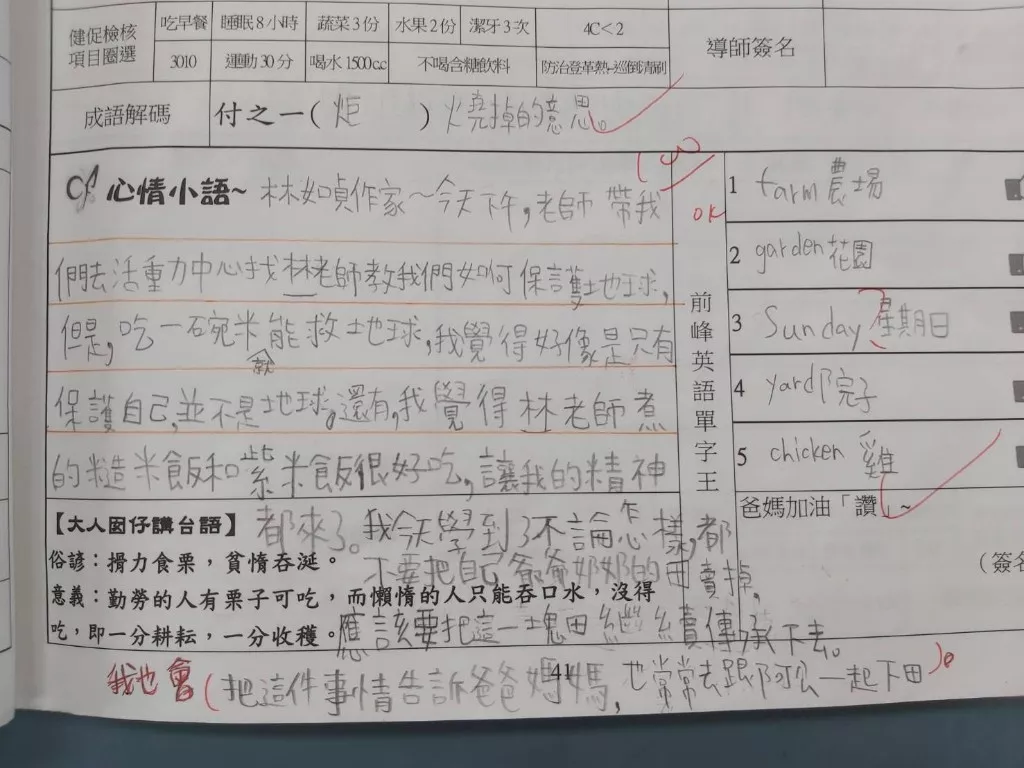 健促檢核
項目圈選
吃早餐 睡眠8小時 蔬菜3份 水果2份 潔牙3次 4C<2
3010 運動30分 喝水1500c.c 不喝含糖飲料 防治登革熱-巡倒清刷
導師簽名
成語解碼 付之一(炬)燒掉的意思。
心情小語~ 林如貞作家~今天下午,老師帶我
們去活動中心找林老師教我們如何保護地球,
但是,吃一碗米就能救地球,我覺得好像是只有
保護自己,並不是地球。還有,我覺得林老師煮
的糙米飯和紫米飯很好吃,讓我的精神
都來了。我今天學到了不論怎樣,都
不要把自己爺爺奶奶的田賣掉,
應該要把這一塊田繼續傳承下去。
我也會(把這件事情告訴爸爸媽媽,也常常去跟阿公一起下田)。
【大人囡仔講台語】
俗諺:搰力食栗,貧惰吞涎。
意義:勤勞的人有栗子可吃,而懶惰的人只能吞口水,沒得
吃,即一分耕耘,一分收穫。
OK
前峰英語單字王
1 farm農場
2 garden花園
3 Sunday星期日
4 yard院子
5 chicken雞
爸媽加油「讚」~
(簽名
41